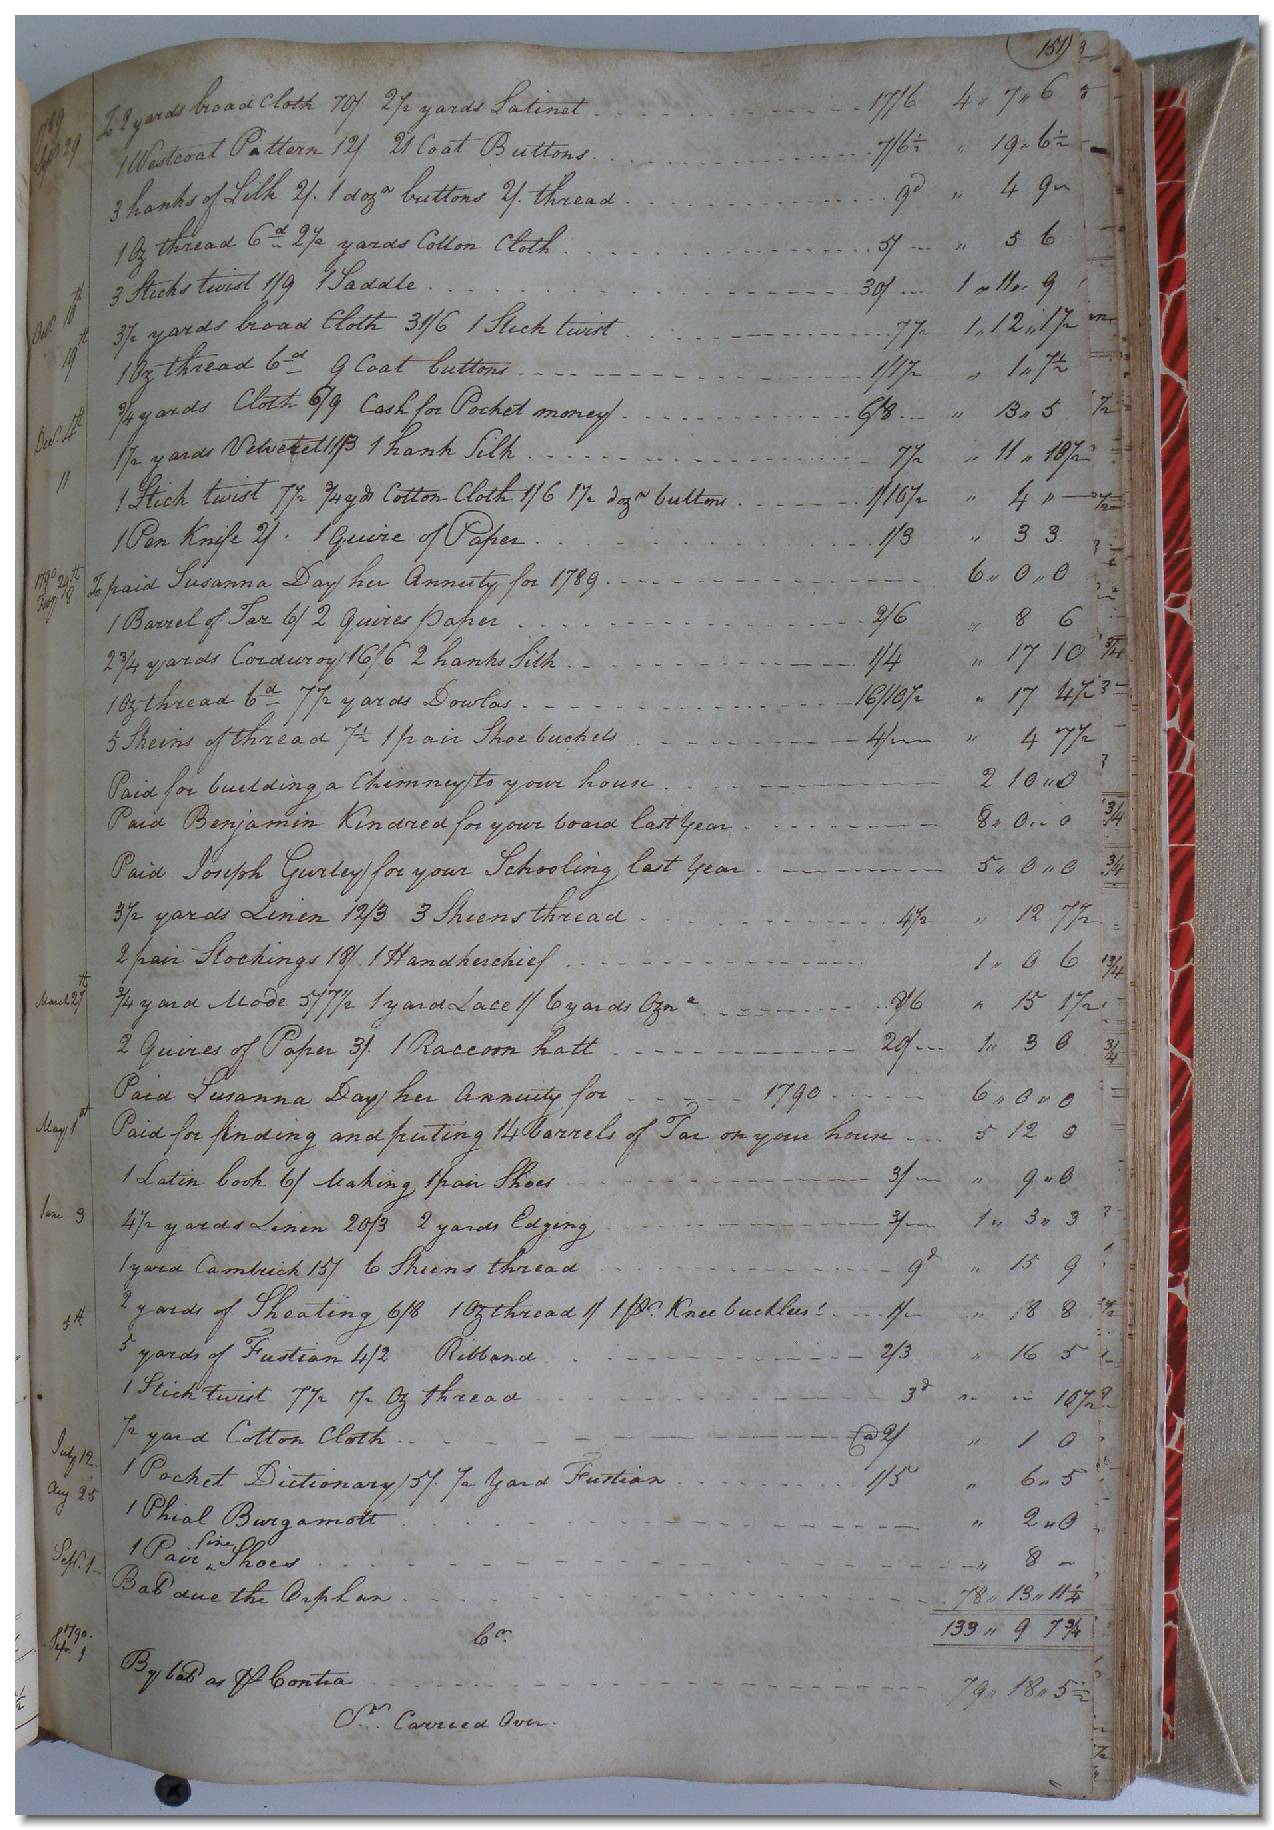 151
1789 Sept 29 To 2 yards broad Cloth 70/ 2 1/2 yards Satinet 17/6 4 " 7 " 6
1 Westcoat Pattern 12/ 21 Coat Buttons 7/6 1/2 " 19 " 6 1/2
3 hanks of Silk 2/. 1 dozn buttons 2/. thread 9d " 4 9
1 Oz thread 6d 2 1/2 yards Cotton Cloth 5/ " 5 6
3 Sticks twist 1/9 1 Saddle 30/ 1 " 11 " 9
10th 3 1/2 yards broad Cloth 31/6 1 Stick twist 7 1/2 1 " 12 " 1 1/2
19th 1 Oz thread 6d 9 Coat buttons 1/1 1/2 " 1 " 7 1/2
3/4 yards Cloth 6/9 Cash for Pocket money 6/8 " 13 " 5
Decr 4th 1 1/2 yards Velveret 11/3 1 hank Silk 7 1/2 " 11 " 10 1/2
11 1 Stick twist 7 1/2 3/4 yds Cotton Cloth 1/6 1 1/2 dozn buttons 1/10 1/2 " 4 " —
1 Pen Knife 2/. 1 Quire of Paper 1/3 " 3 3
1790 To paid Susanna Day her Annuity for 1789 6 " 0 " 0
1 Barrel of Tar 6/ 2 Quires paper 2/6 " 8 6
2 3/4 yards Corduroy 16/6 2 hanks Silk 1/4 " 17 10
1 Oz thread 6d 7 1/2 yards Dowlas 16/10 1/2 " 17 4 1/2
5 Skeins of thread 7 1/2 1 pair Shoe buckels 4/ " 4 7 1/2
Paid for building a Chimney to your house 2 10 " 0
Paid Benjamin Kindred for your board last Year 8 " 0 " 0
Paid Joseph Gurley for your Schooling last Year 5 " 0 " 0
3 1/2 yards Linen 12/3 3 Skeins thread 4 1/2 " 12 7 1/2
2 pair Stockings 18/. 1 Handkerchief 1 " 0 6
March 27th 3/4 yard Mode 5/7 1/2 1 yard Lace 1/ 6 yards Ozna 8/6 " 15 1 1/2
2 Quires of Paper 3/. 1 Raccoon hatt 20/ 1 " 3 0
Paid Susanna Day her Annuity for 1790 6 " 0 " 0
May 1st Paid for finding and puting 14 barrels of Tar on your house 5 12 0
1 Latin book 6/ Making 1 pair Shoes 3/ " 9 " 0
June 3 4 1/2 yards Linen 20/3 2 yards Edging 3/ 1 " 3 " 3
1 yard Cambrick 15/ 6 Skeins thread 9d " 15 9
2 yards of Sheating 6/8 1 Oz thread 1/ 1 pr Knee buckles 1/ " 18 8
5 yards of Fustian 4/2 Ribband 2/3 " 16 5
1 Stick twist 7 1/2 1/2 Oz thread 3d " " 10 1/2
1/2 yard Cotton Cloth @ 2/ " 1 0
July 12 1 Pocket Dictionary 5/. 1/2 Yard Fustian 1/5 " 6 " 5
Aug 25 1 Phial Burgamott " 2 " 0
Sept. 1 1 Pair fine Shoes " 8 –
Bale due the Orphan 78 " 13 " 11 1/4
133 " 9 7 3/4
Cr
1790 Sepr 1 By bale as pr Contra 79 " 18 " 5 1/2
Carried Over.